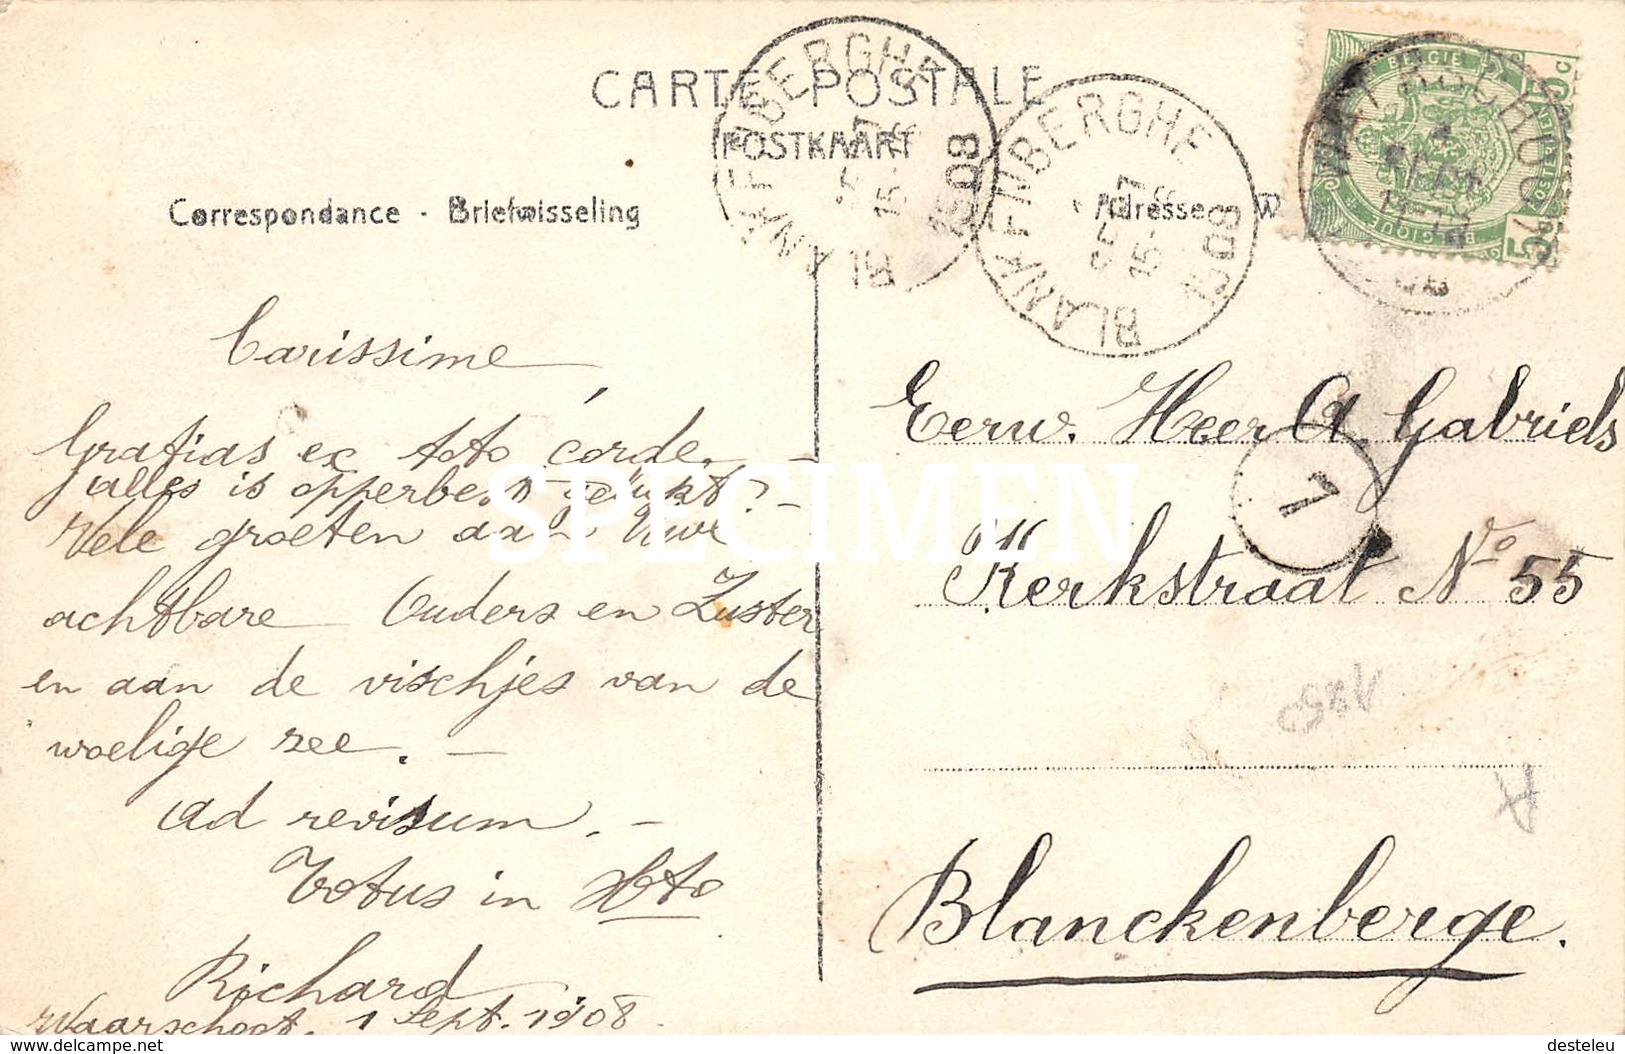 CARTE POSTALE
POSTKAART
Correspondance - Briefwisseling
Adresse
BLANKENBERGHE
15-
1908
BLANKENBERGHE
15-
1908
WAERSCHOOT
BELGIE
BELGIQUE
5
5
Carissime,
Gratias ex toto corde. -
alles is opperbest gelukt. -
Vele groeten aan Uwe
achtbare Ouders en Zuster
en aan de vischjes van de
woelige zee. -
Ad revisum. -
Totus in Xto
Richard
Waarschoot, 1 Sept. 1908.
Eerw. Heer A. Gabriels
Kerkstraat No 55
1
Blanckenberge.
SPECIMEN
www.delcampe.net
desteleu